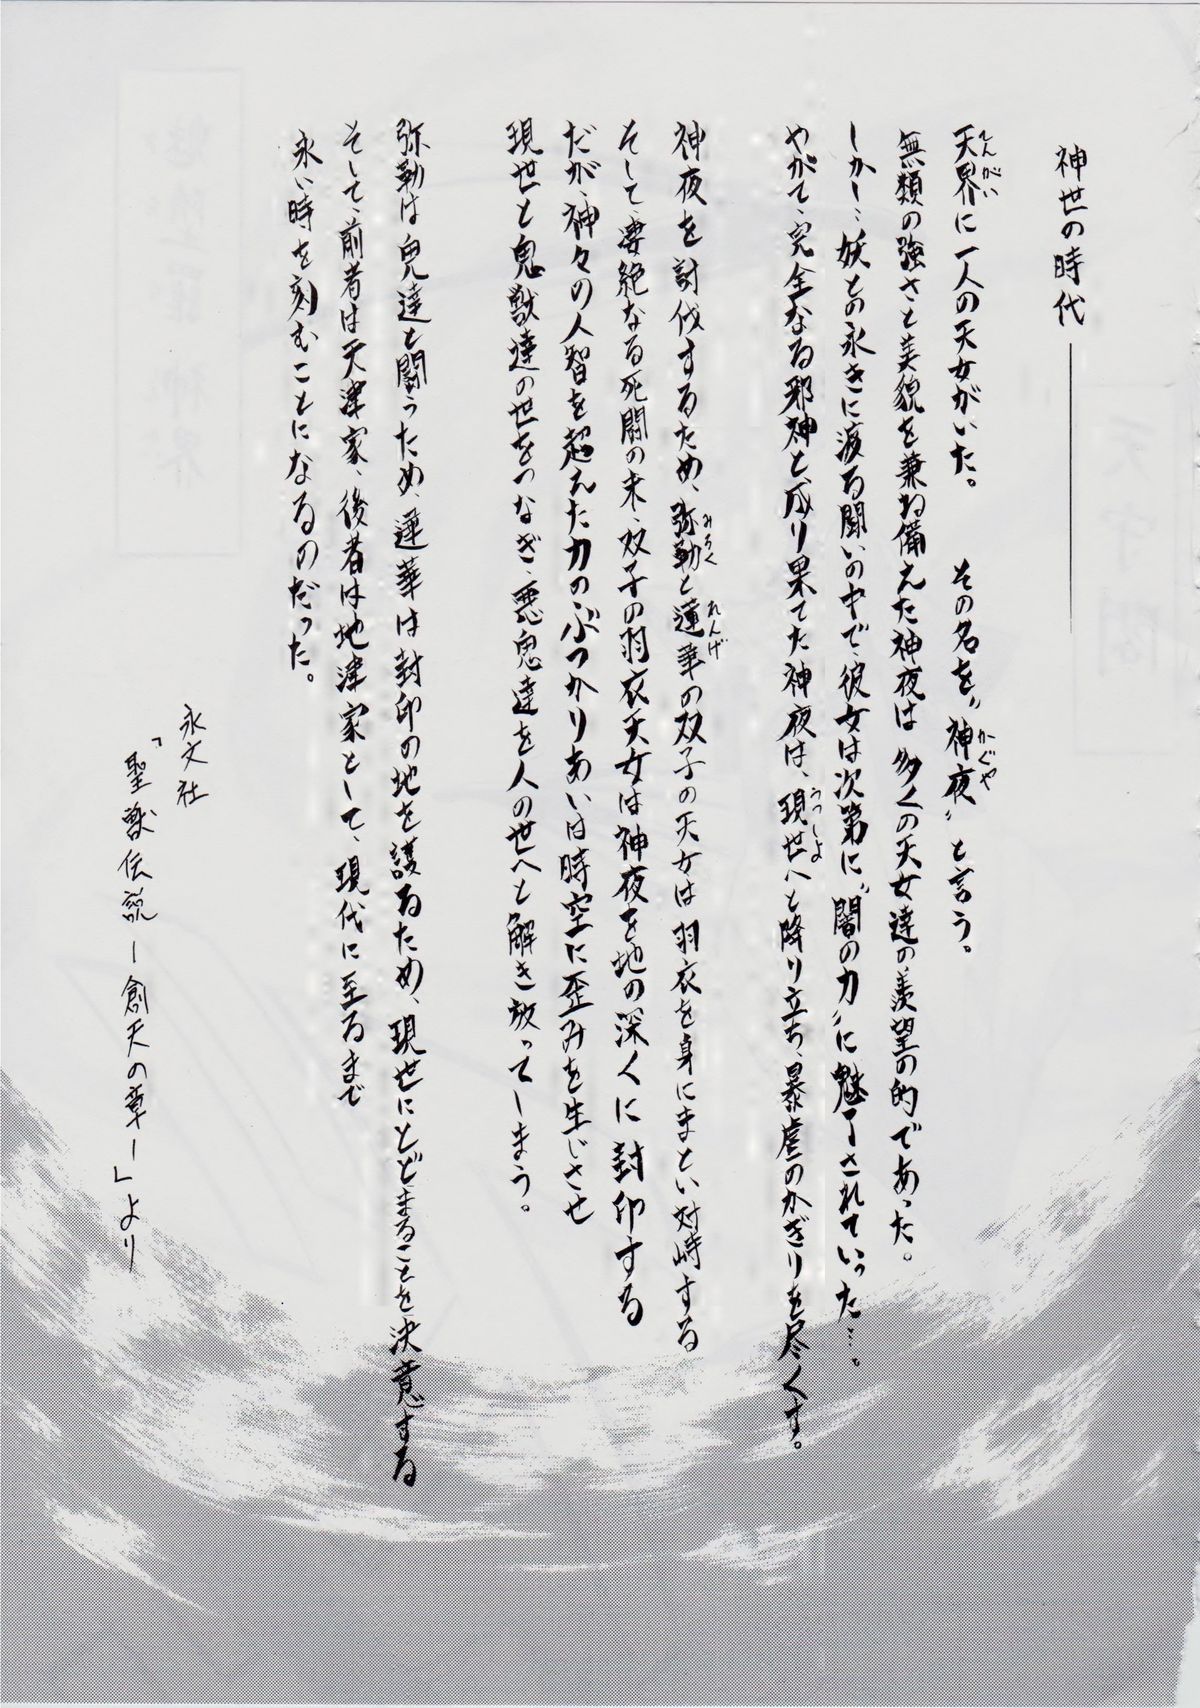 神世の時代――――
天界に一人の天女がいた。　その名を〝神夜〟と言う。
てんがい
かぐや
無類の強さと美貌を兼ね備えた神夜は多くの天女達の羨望の的であった。
しかし…妖との永きに渡る闘いの中で、彼女は次第に〝闇の力〟に魅了されていった…。
やがて、完全なる邪神と成り果てた神夜は、現世へと降り立ち、暴虐のかぎりを尽くす。
うつしよ
神夜を討伐するため、弥勒と蓮華の双子の天女は羽衣を身にまとい対峙する
みろく
れんげ
そして、凄絶なる死闘の末、双子の羽衣天女は神夜を地の深くに封印する
だが、神々の人智を超えた力のぶつかりあいは時空に歪みを生じさせ
現世と鬼獣達の世をつなぎ、悪鬼達を人の世へと解き放ってしまう。
弥勒は鬼達と闘うため、蓮華は封印の地を護るため、現世にとどまることを決意する
そして、前者は天津家、後者は地津家として、現代に至るまで
永い時を刻むことになるのだった。
永文社
「聖獣伝説－創天の章－」より